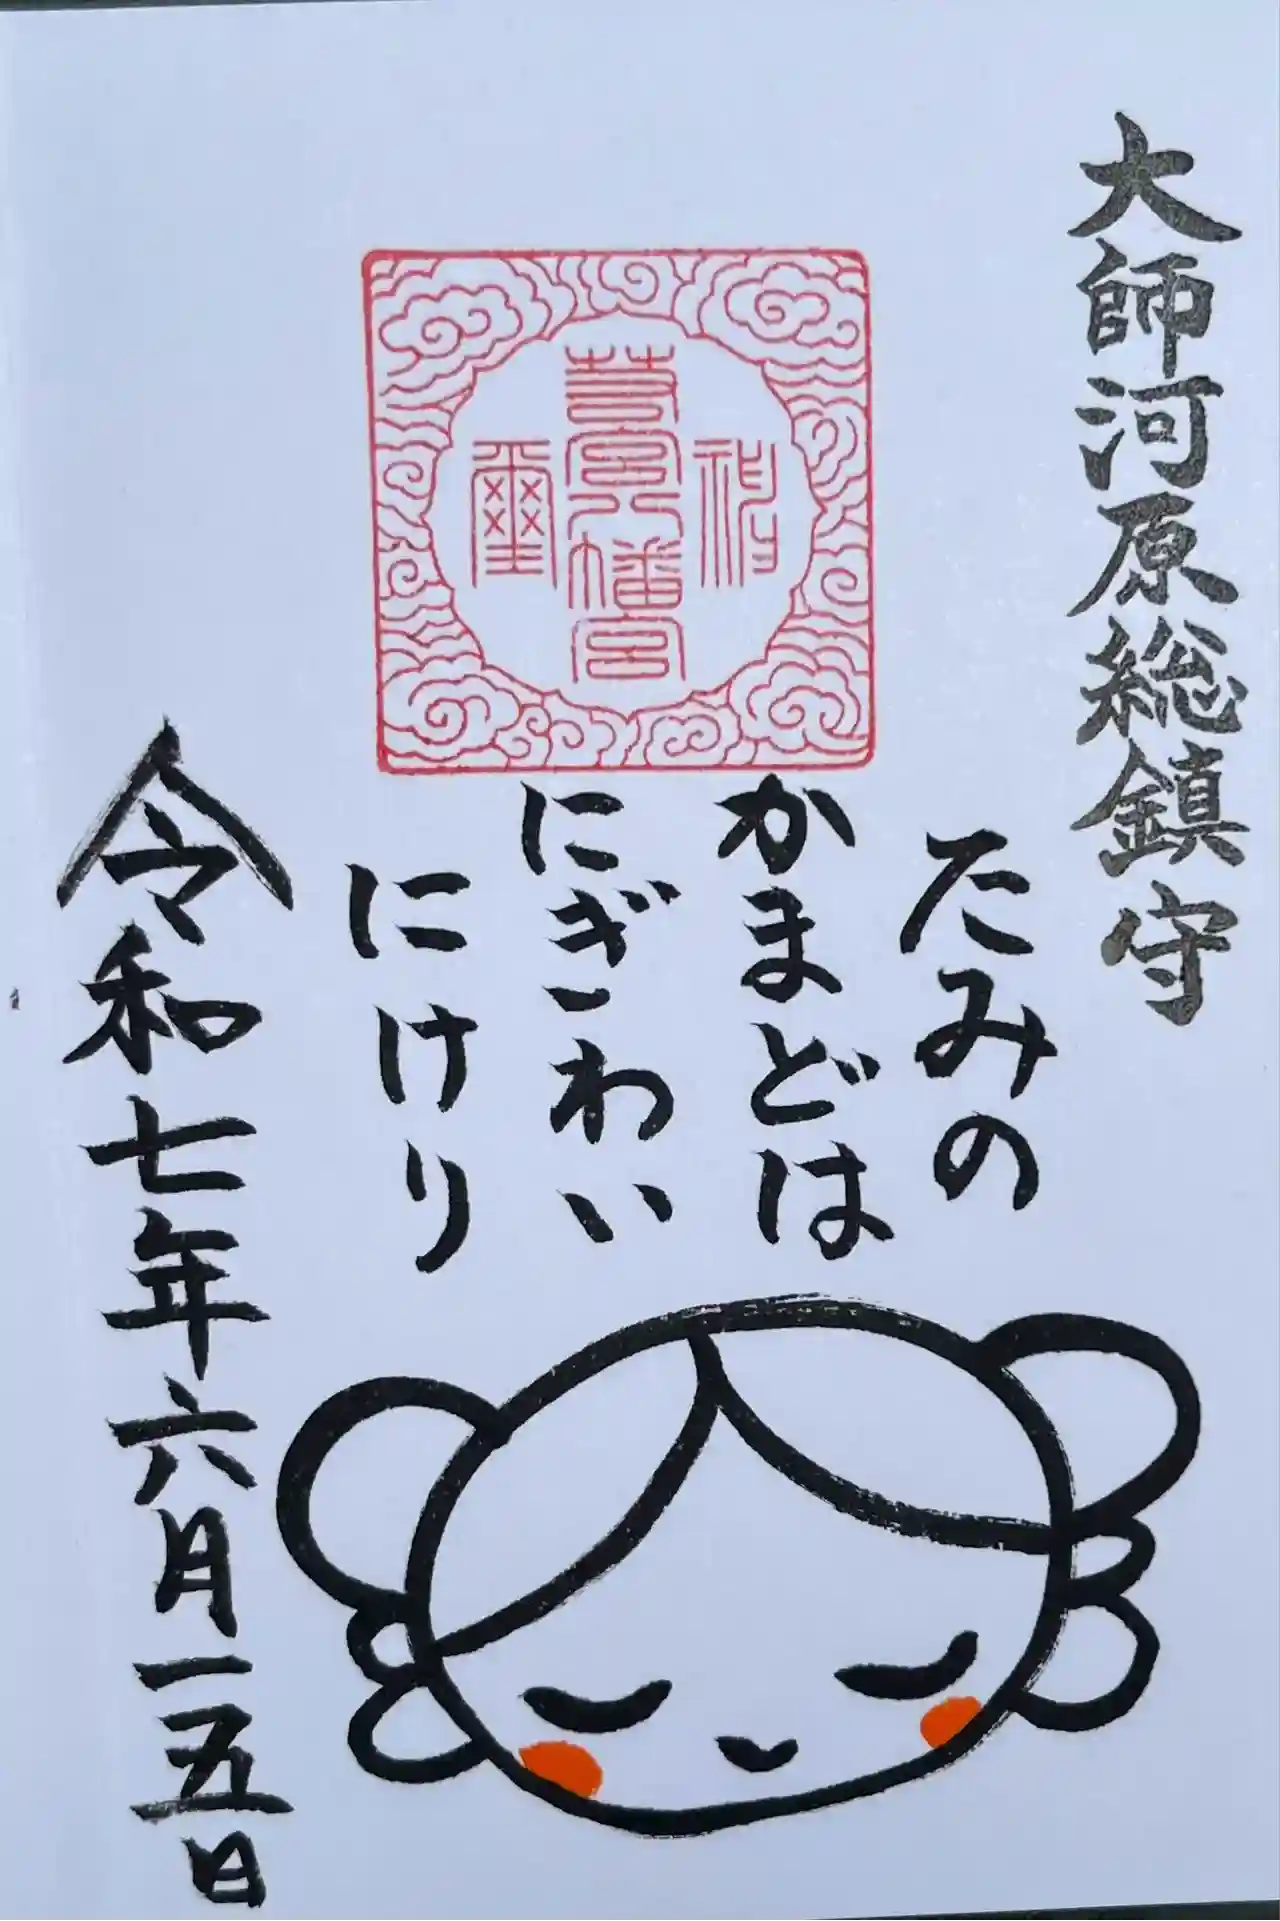 大師河原総鎮守
若宮八幡宮
神璽
たみの
かまどは
にぎわい
にけり
令和七年六月一五日